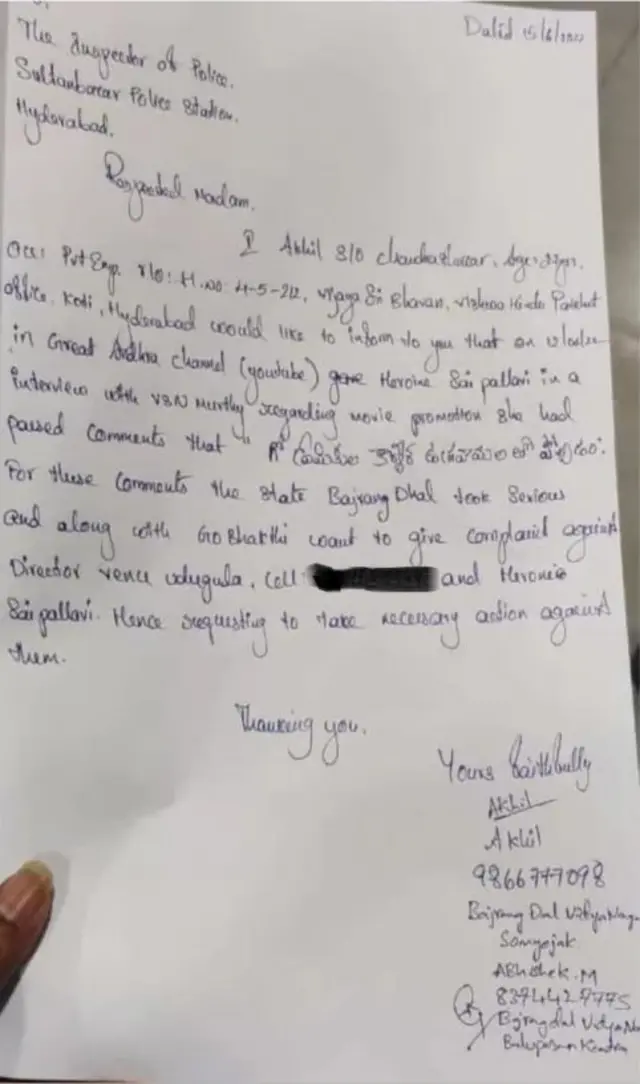 Datid 15/6/2022
The Inspector of Police.
Sultanbazar Police Station.
Hyderabad.
Respected Madam.
I Akhil S/o Chandrashekar, Age: 22yrs,
Occ: Pvt Emp. R/o: H.no: 4-5-212, Vijaya Sri Bhavan, Vishwa Hindu Parishat
office. Koti, Hyderabad would like to inform to you that on
in Great Andhra channel (youtube) gave Heroine Sai pallavi in a
interview with VSN Murthy regarding movie promotion she had
passed comments that "
For these comments the state Bajrang Dhal took Serious
and along with Go Bhakthi want to give complaint against
Director venu udugula. Cell and Heronie
Sai pallavi. Hence requesting to take necessary action against
them.
Thanking you.
Yours faithfully
Akhil
Akhil
9866777098
Bajrang Dal VidyaNaga
Samyojak
Abhishek.M
8374427775
Bajrangdal Vidya Na
Balupasan Kendra